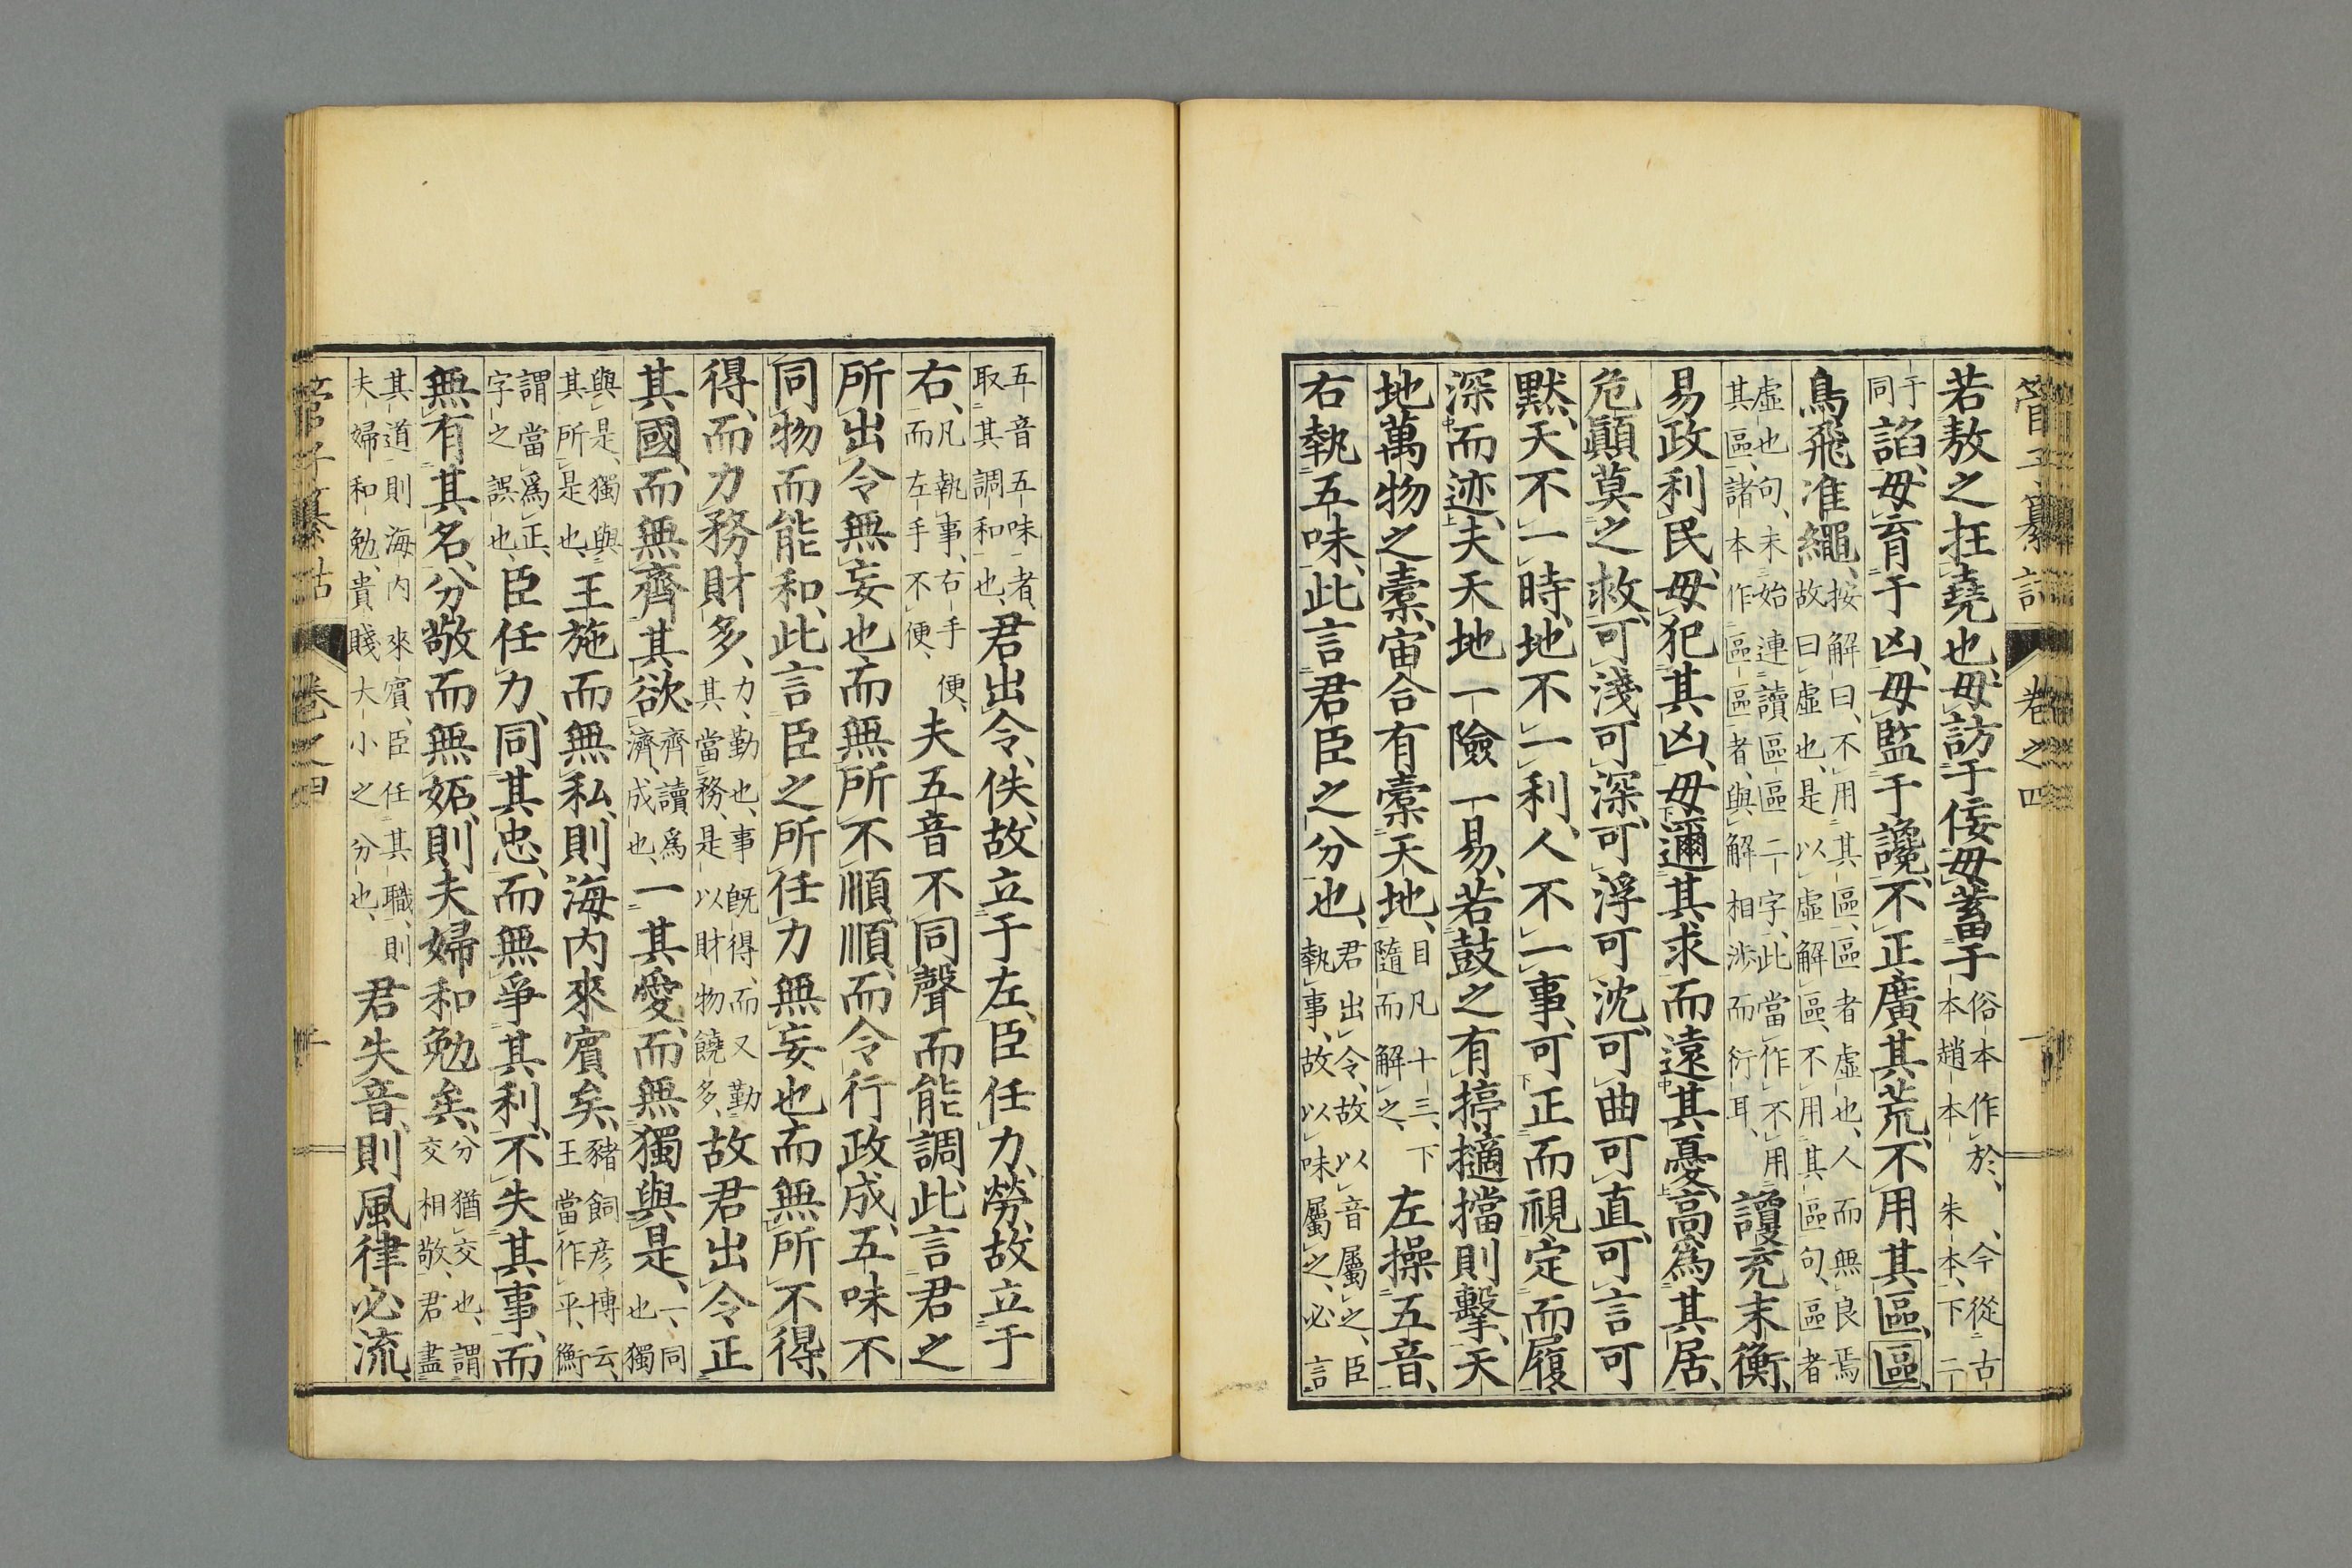 若敖之在堯也、毋訪于佞、毋蓄于俗本作於、今從古本趙本朱本、下二
于同諂、毋育于凶、毋監于讒、不正廣其荒、不用其區、區、
鳥飛准繩、按解曰、不用其區、區者虛也、人而無良焉故曰虛也、是以虛解區、不用其區句、區者
虛也句、未始連讀區區二字、此當作不用其區、諸本作區區者、與解相涉而衍耳、讂充末衡、
易政利民、毋犯其凶、毋邇其求而遠其憂、高爲其居、
危顚莫之救、可淺可深、可浮可沈、可曲可直、可言可
默、天不一時、地不一利、人不一事、可正而視、定而履、
深而迹、夫天地一險一易、若鼓之有桴、擿擋則擊、天
地萬物之橐、宙合有橐天地、目凡十三、下隨而解之、左操五音、
右執五味、此言君臣之分也、君出令、故以音屬之、臣執事、故以味屬之、必言
管子纂詁 卷之四
五音五味者、取其調和也、君出令、佚、故立于左、臣任力、勞、故立于
右、凡執事、右手便、而左手不便、夫五音不同聲而能調、此言君之
所出令無妄也、而無所不順、順而令行政成、五味不
同物而能和、此言臣之所任力無妄也、而無所不得、
得、而力務財多、力、勤也、事既得、而又勤其當務、是以財物饒多、故君出令、正
其國、而無齊其欲、齊讀爲濟、成也、一其愛、而無獨與是、一、同也、獨
與是、獨與其所是也、王施而無私、則海內來賓矣、豬飼彥博云、王當作平、衡
謂當爲正、字之誤也、臣任力、同其忠、而無爭其利、不失其事、而
無有其名、分敬而無妬、則夫婦和勉矣、分猶交也、謂交相敬、君盡
其道、則海內來賓、臣任其職、則夫婦和勉、貴賤大小之分也、君失音、則風律必流、
卷之四